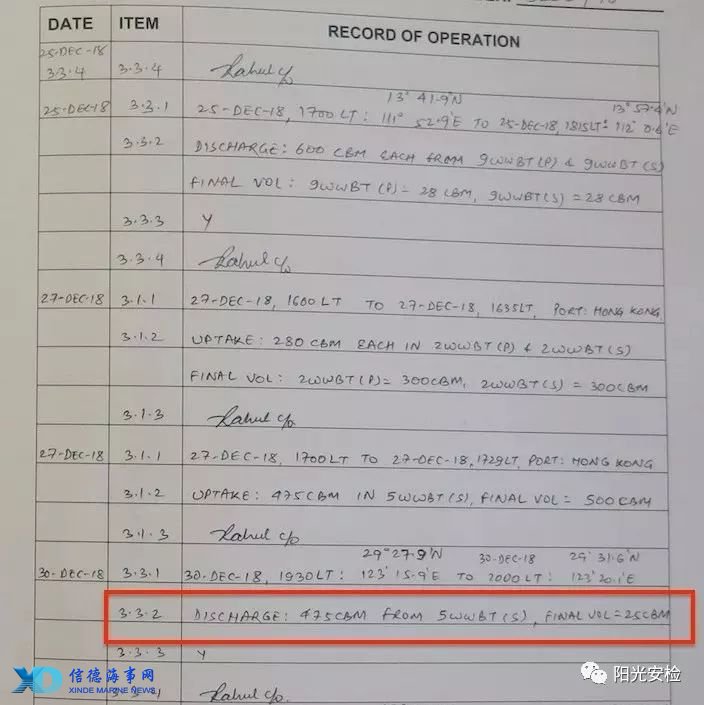 DATE ITEM RECORD OF OPERATION
25-DEC-18
3.3.4 3.3.4 Rahul c/o
13° 41.9'N 13° 57.4'N
25-DEC-18 3.3.1 25-DEC-18, 1700LT: 111° 52.9'E TO 25-DEC-18, 1815LT: 112° 0.6'E
3.3.2 DISCHARGE: 600 CBM EACH FROM 9WWBT(P) & 9WWBT(S)
FINAL VOL: 9WWBT(P) = 28 CBM, 9WWBT(S) = 28 CBM
3.3.3 Y
3.3.4 Rahul c/o
27-DEC-18 3.1.1 27-DEC-18, 1600LT TO 27-DEC-18, 1635LT, PORT: HONG KONG
3.1.2 UPTAKE: 280 CBM EACH IN 2WWBT(P) & 2WWBT(S)
FINAL VOL: 2WWBT(P) = 300CBM, 2WWBT(S) = 300CBM
3.1.3 Rahul c/o
27-DEC-18 3.1.1 27-DEC-18, 1700LT TO 27-DEC-18, 1729LT, PORT: HONG KONG
3.1.2 UPTAKE: 475CBM IN 5WWBT(S), FINAL VOL = 500CBM
3.1.3 Rahul c/o
29° 27.9'N 30-DEC-18 29° 31.6'N
30-DEC-18 3.3.1 30-DEC-18, 1930LT: 123° 15.9'E TO 2000LT: 123° 20.1'E
3.3.2 DISCHARGE: 475CBM FROM 5WWBT(S), FINAL VOL = 25CBM
3.3.3 Y
信德海事网
XINDE MARINE NEWS
阳光安检
Rahul c/o.